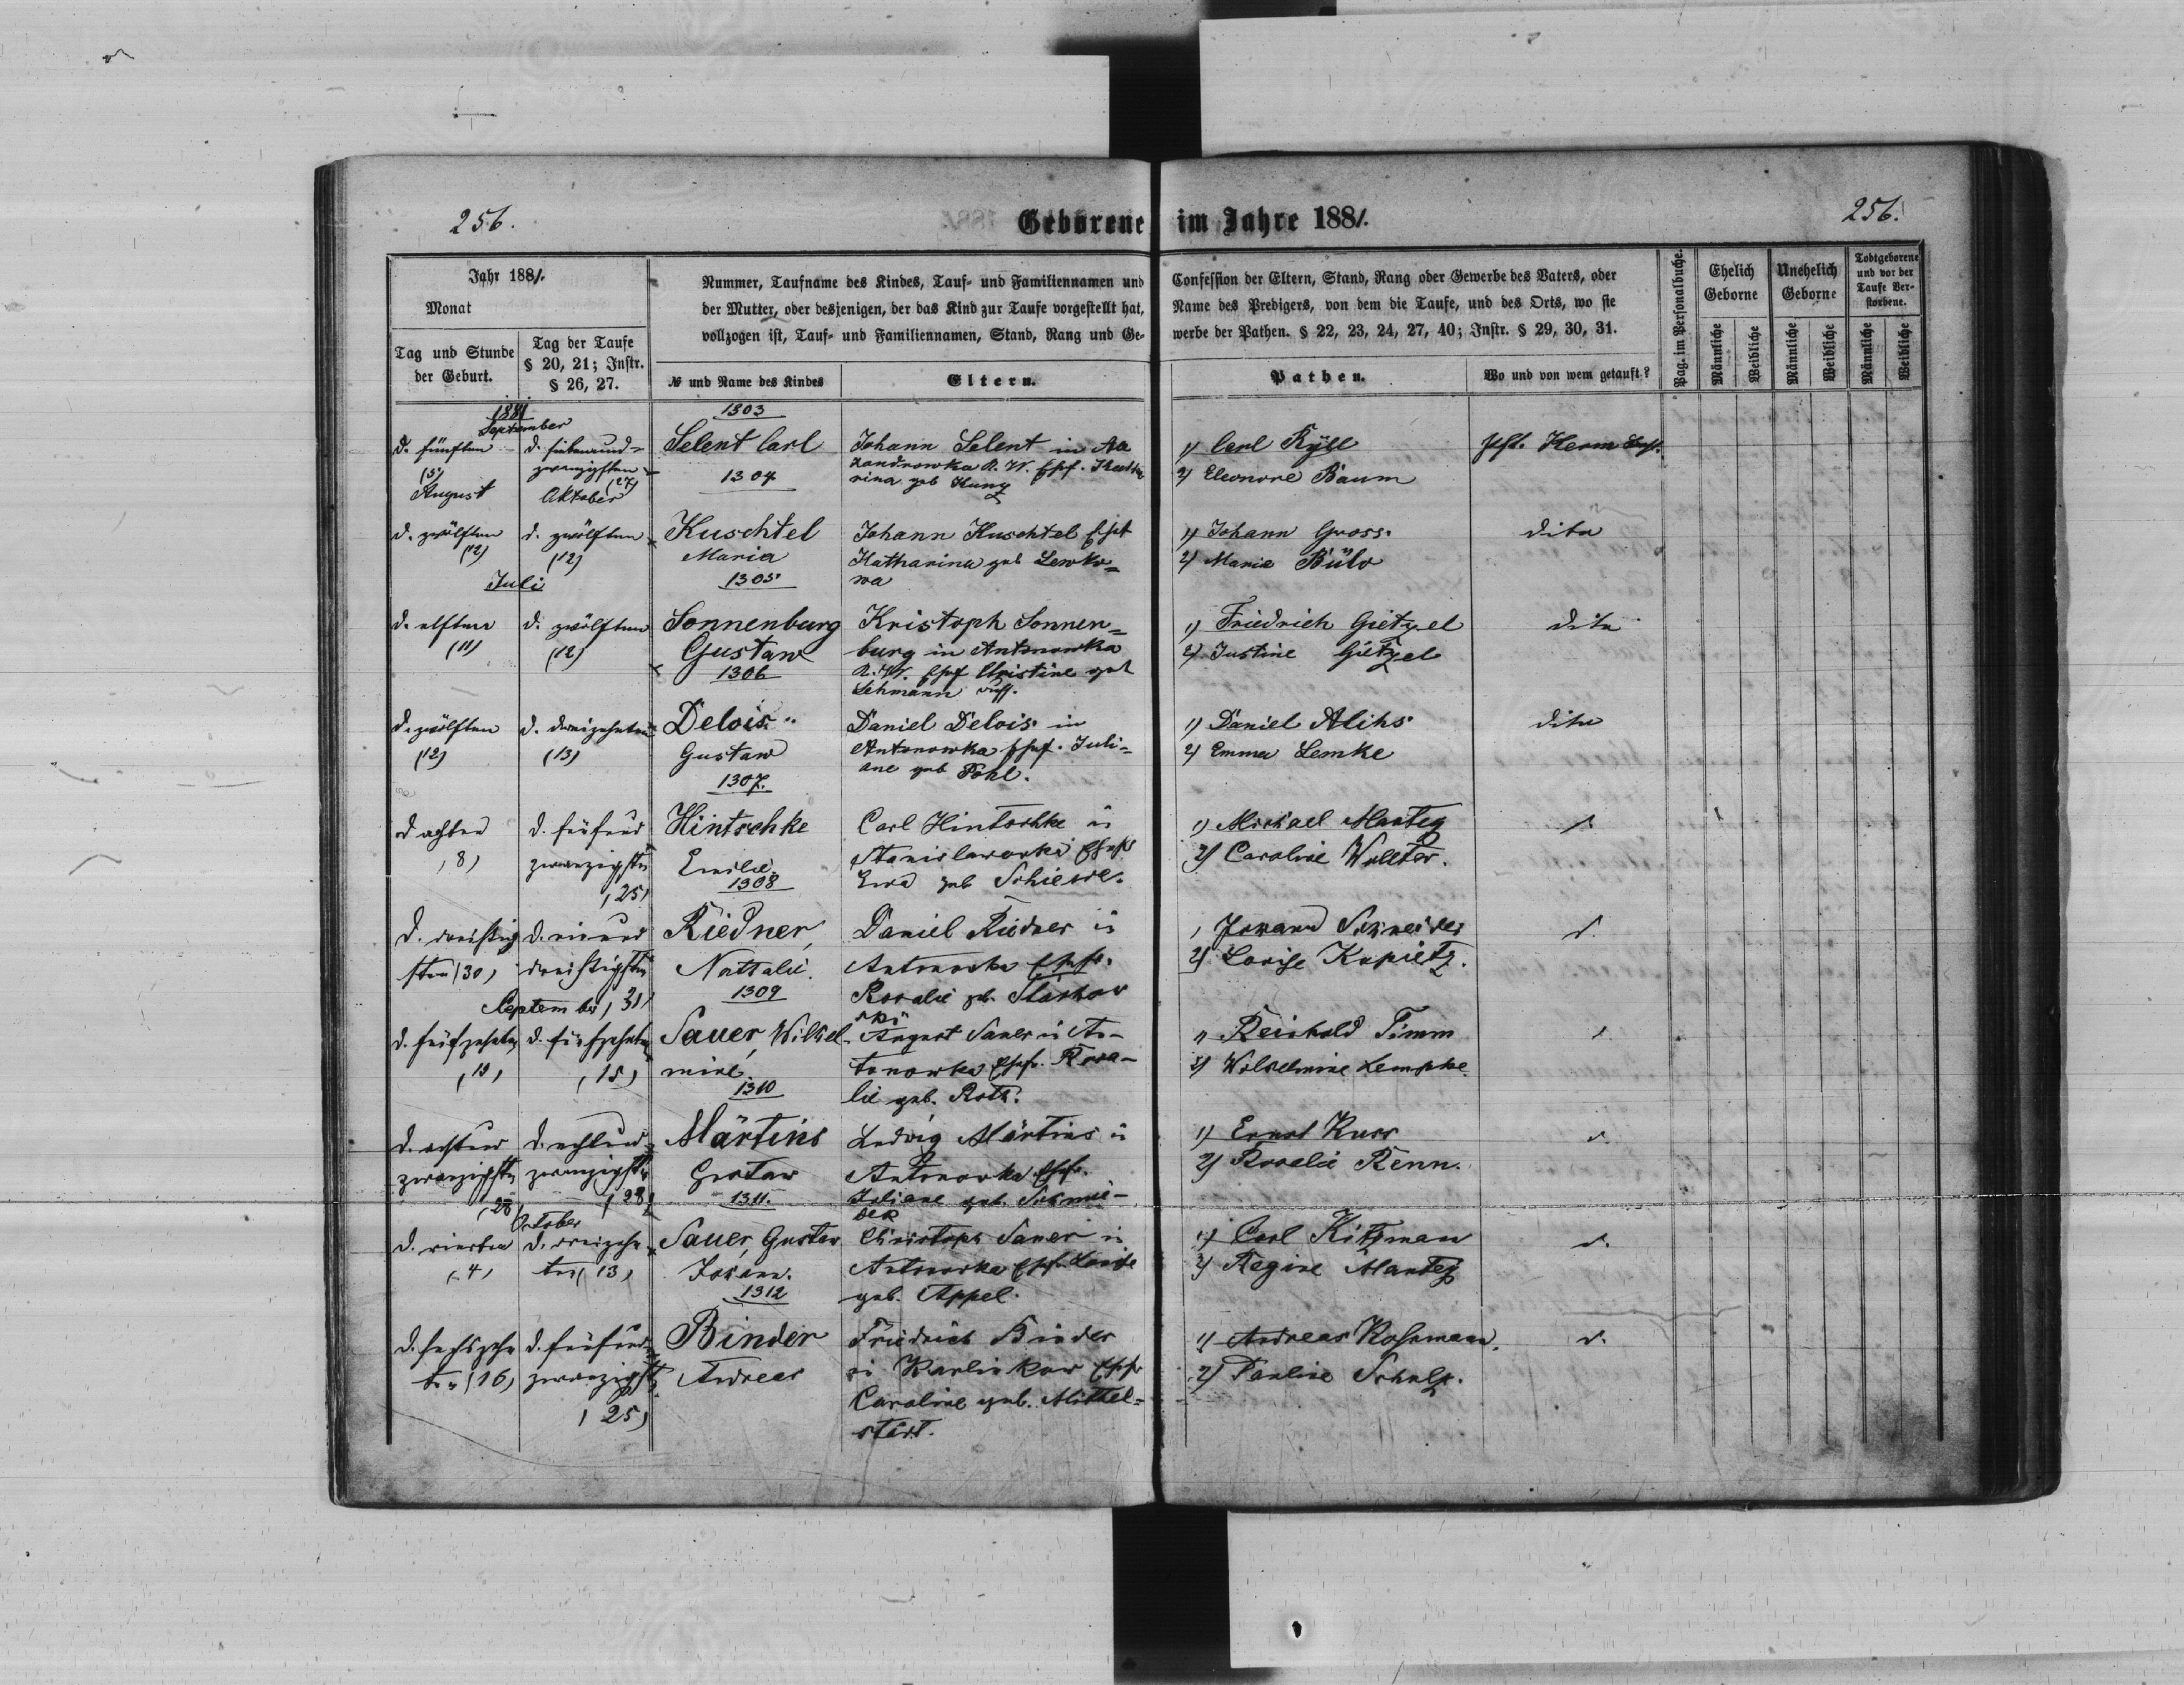 256.
Geborene im Jahre 1881.
256.
Jahr 1881.
Monat
Tag und Stunde der Geburt.
Tag der Taufe § 20, 21; Instr. § 26, 27.
Nummer, Taufname des Kindes, Tauf- und Familiennamen und
der Mutter, oder desjenigen, der das Kind zur Taufe vorgestellt hat,
vollzogen ist, Tauf- und Familiennamen, Stand, Rang und Ge-
№ und Name des Kindes
Eltern.
Confession der Eltern, Stand, Rang oder Gewerbe des Vaters, oder
Name des Predigers, von dem die Taufe, und des Orts, wo sie
werbe der Pathen. § 22, 23, 24, 27, 40; Instr. § 29, 30, 31.
Pathen.
Wo und von wem getauft?
Pag. im Personalbuche.
Ehelich Geborne
Unehelich Geborne
Todtgeborene und vor der Taufe Verstorbene.
Männliche
Weibliche
Männliche
Weibliche
Männliche
Weibliche
1881
September
1303
d. fünften
(5)
d. siebenund-
zwanzigsten
(27)
Selent Carl
Johann Selent in
rina geb Kunz
1) Carl
2) Eleonore Baum
August
Oktober
1304
d. zwölften
(12)
d. zwölften
(12)
Kuschtel
Maria
Johann Kuschtel
Katharina geb Lewko-
wa
1) Johann Gross
2) Maria Bülo
dito
Juli
1305
d. elften
(11)
d. zwölften
(12)
Sonnenburg
Gustaw
Kristoph Sonnen-
burg in Antonowka
Christine geb
Lehmann
1) Friedrich Gietzel
2) Justine Gietzel
dito
1306
d. zwölften
(12)
d. dreizehnten
(13)
Delois
Gustaw
Daniel Delois in
Antonowka Ehef. Juli-
ane geb Pohl.
1) Daniel
2) Emma Lemke
dito
1307.
d achten
(8)
d. fünfund
zwanzigsten
(25)
Hintschke
Emilie.
Carl Hintschke in
Ehefr
Ewa geb Schiewe.
1) Michael Manteg
2) Caroline Wollter.
1308
d. dreißig
sten (30)
d. einund
dreißigsten
(31)
Riedner,
Nattalie.
Daniel Riedner in
Antonowka Ehefr.
Rosalie geb.
1) Johann Schneider
2) Louise Kopietz.
d.
September
1309
d. fünfzehnten
(15)
d. fünfzehnten
(15)
Sauer, Wilhel-
mine
August Sauer in An-
tonowka Ehefr. Rosa-
lie geb. Roth.
1) Reinhold Timm
2) Wilhelmine Lempke
1310
d. achtund
zwanzigsten
(28)
d. achtund
zwanzigsten
(28)
Märtins
Gustaw
Ludwig Märtins in
Antonowka Ehefr.
Juliane geb. Schnei-
der
1) Ernst Kuss
2) Rosalie Renn.
d.
October
1311.
d. vierten
(4)
d. dreizehn
ten (13)
Sauer, Gustav
Johann.
Christoph Sauer in
Antonowka Ehef. Louise
geb. Appel.
1) Carl Kitzman
2) Regine Manteg
d.
1312
d. sechszehn
ten (16)
d. fünfund
zwanzigsten
(25)
Binder
Andreas
Friedrich Binder
in Karlinkow Ehefr
Caroline geb. Mittel-
städt.
1) Andreas
2) Pauline Schulz.
d.